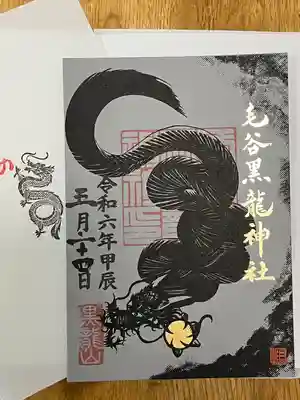 毛谷黒龍神社
令和六年甲辰
五月二十四日
黒龍山
の